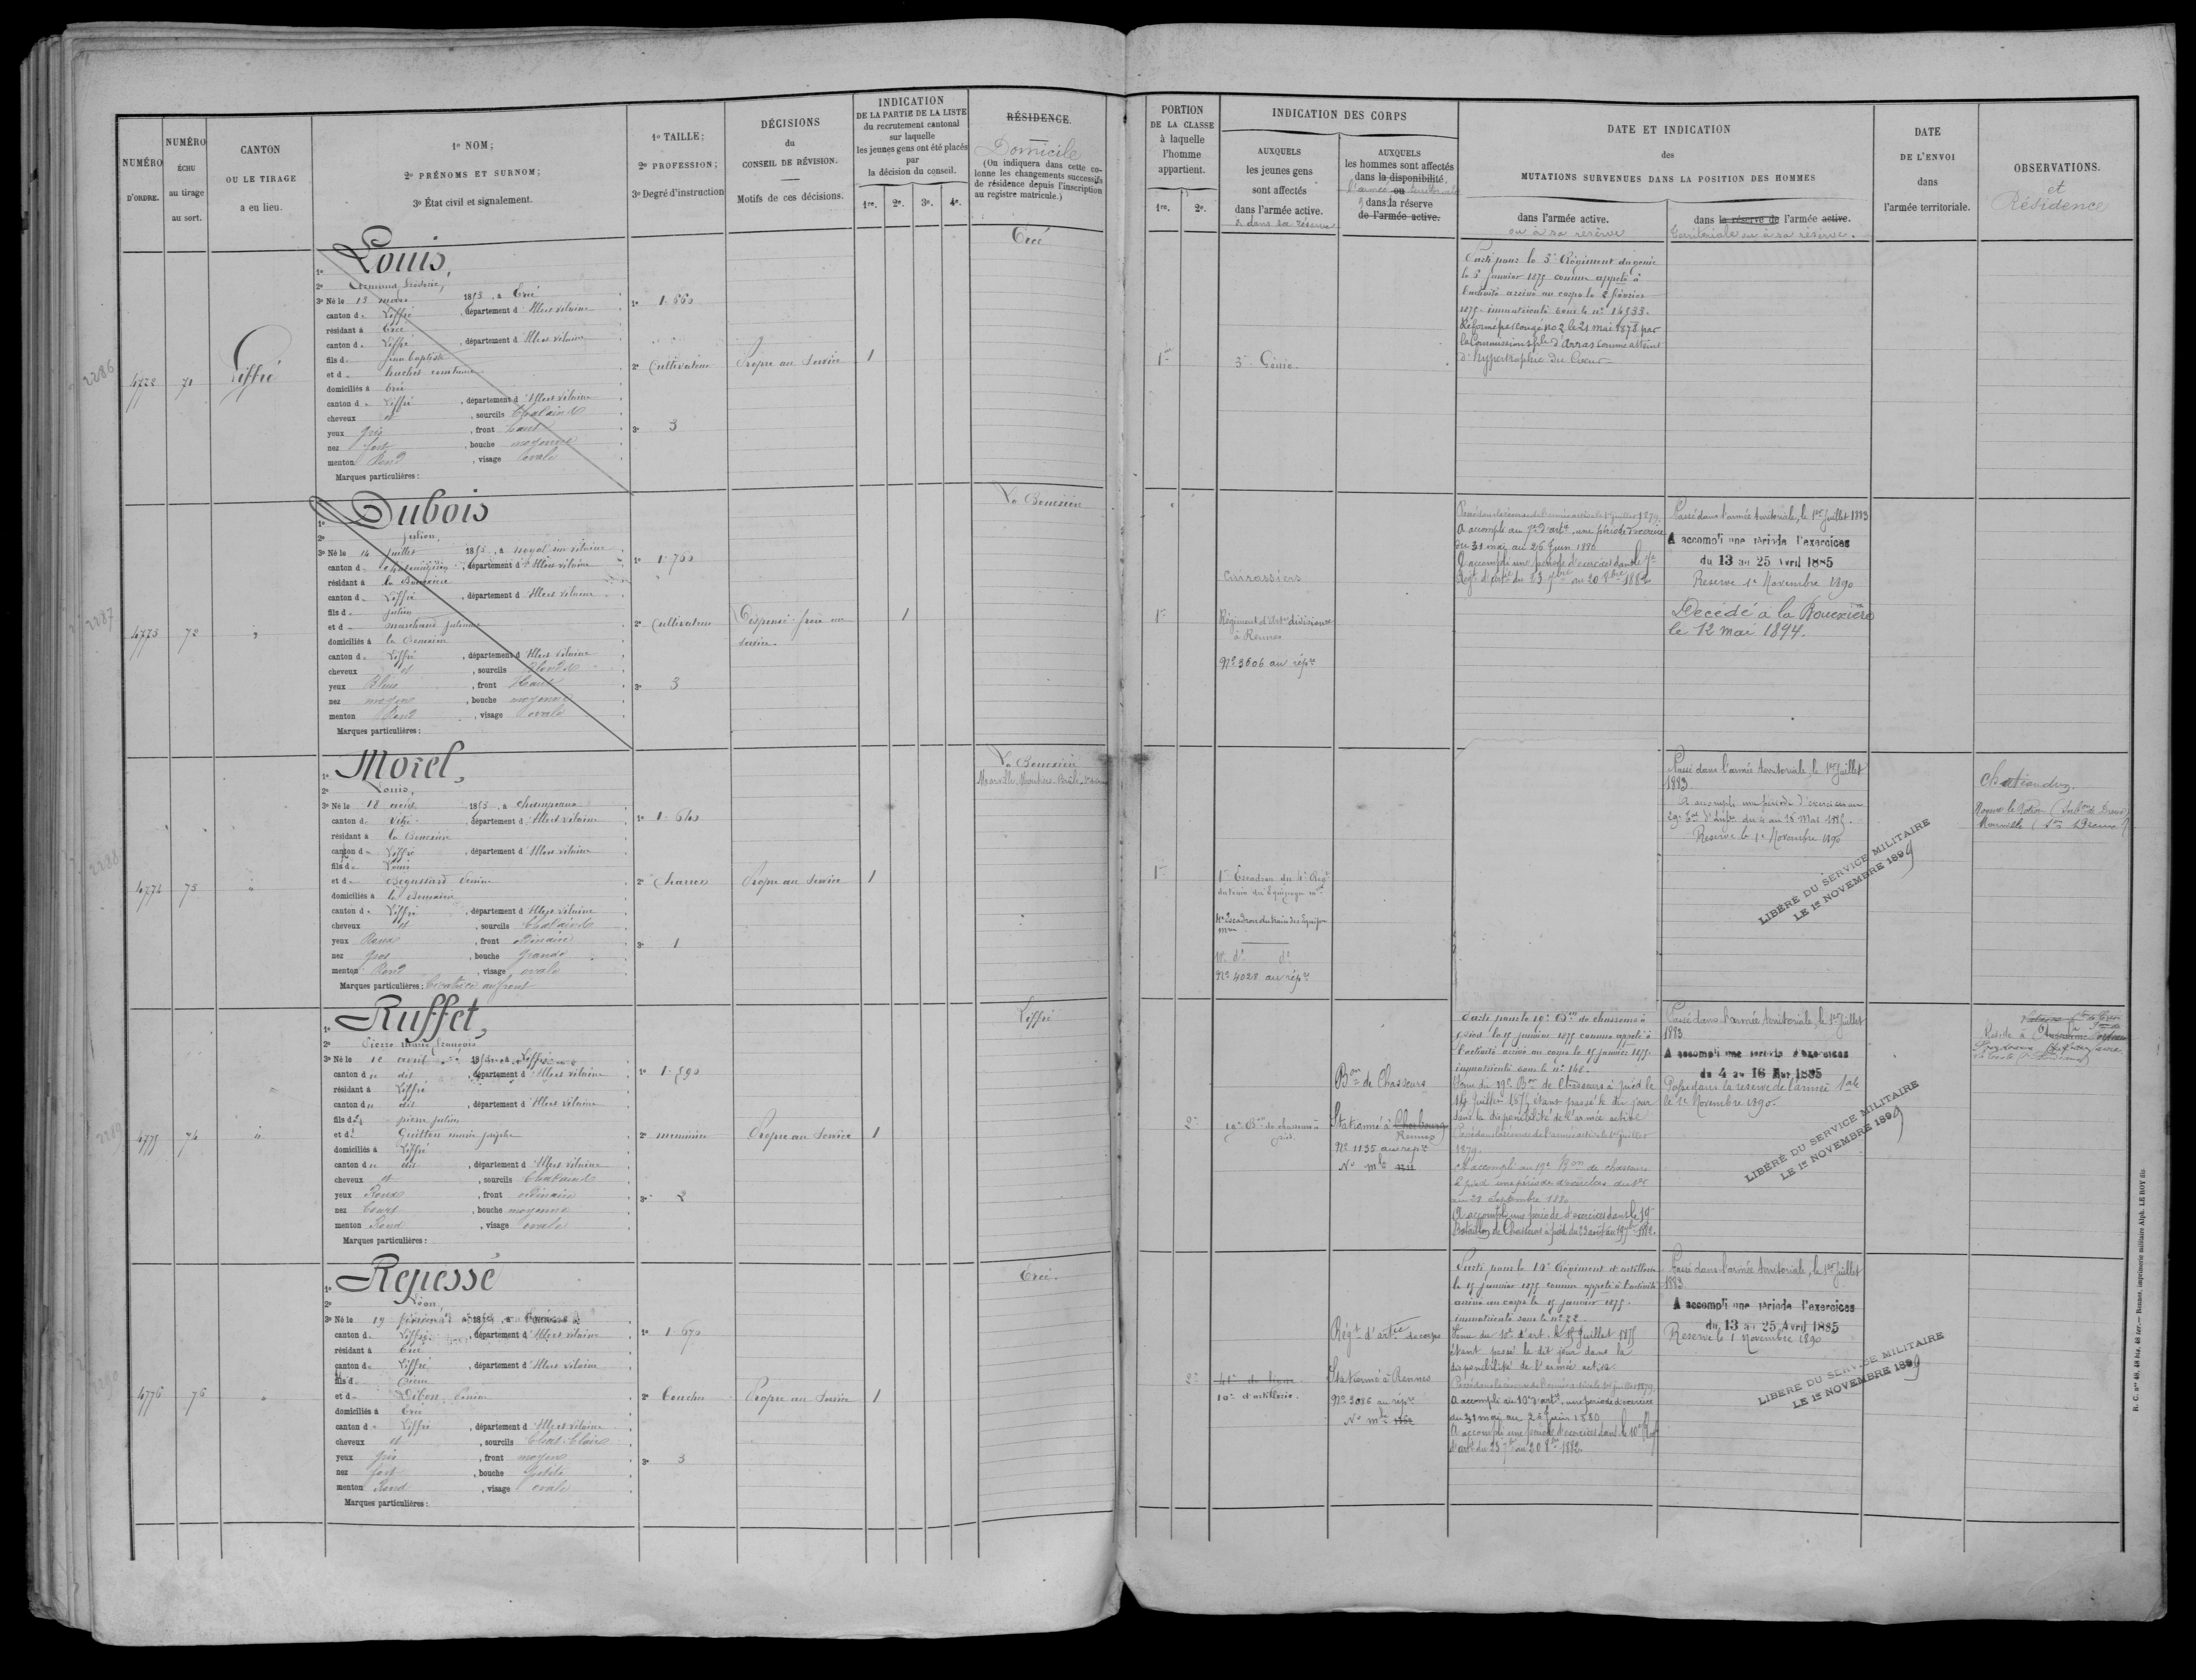 NUMÉRO D'ORDRE.
NUMÉRO ÉCHU au tirage au sort.
CANTON OU LE TIRAGE a eu lieu.
1º NOM;
2º PRÉNOMS ET SURNOM;
3º État civil et signalement.
1º TAILLE;
2º PROFESSION;
3º Degré d'instruction
DÉCISIONS du CONSEIL DE RÉVISION.
Motifs de ces décisions.
INDICATION
DE LA PARTIE DE LA LISTE
du recrutement cantonal
sur laquelle
les jeunes gens ont été placés
par
la décision du conseil.
1re. 2e. 3e. 4e.
RÉSIDENCE.
Domicile
(On indiquera dans cette co-
lonne les changements successifs
de résidence depuis l'inscription
au registre matricule.)
PORTION
DE LA CLASSE
à laquelle
l'homme
appartient.
1re. 2e.
INDICATION DES CORPS
AUXQUELS
les jeunes gens
sont affectés
dans l'armée active.
& dans sa réserve
AUXQUELS
les hommes sont affectés
dans la disponibilité.
l'armée ou territoriale
& dans la réserve
de l'armée active.
DATE ET INDICATION
des
MUTATIONS SURVENUES DANS LA POSITION DES HOMMES
dans l'armée active.
ou à sa réserve
dans la réserve de l'armée active.
territoriale ou à sa réserve.
DATE
DE L'ENVOI
dans
l'armée territoriale.
OBSERVATIONS.
et
Résidence
2286
71
Liffré
1º Louis,
2º Armand Frédéric,
3º Né le 13 mars 1853, à Ercé
canton de Liffré, département d'Ille et Vilaine
résidant à Ercé
canton de Liffré, département d'Ille et Vilaine
fils de Jean Baptiste
et de
domiciliés à Ercé
canton de Liffré, département d'Ille et Vilaine
cheveux et, sourcils Chatains
yeux gris, front haut
nez fort, bouche moyenne
menton Rond, visage ovale
Marques particulières:
1º 1.660
2º Cultivateur
3º 3
Propre au Service
1
Ercé
1re
3e Génie.
Parti pour le 3e Régiment du génie
le 5 janvier 1875 comme appelé à
l'activité arrivé au corps le 8 février
1875. immatriculé sous le nº 14533.
Réformé par Congé no 2 le 21 mai 1878 par
la Commission sple d'Arras comme atteint
d'hypertrophie du Cœur
2287
4773
72
1º Dubois
2º Julien,
3º Né le 14 juillet 1853, à Noyal sur Vilaine
canton de Chateaugiron, département d'Ille et Vilaine
résidant à la Bouexière
canton de Liffré, département d'Ille et Vilaine
fils de Julien
et de marchand Julienne
domiciliés à la Bouexière
canton de Liffré, département d'Ille et Vilaine
cheveux et, sourcils Blonds
yeux Bleus, front Haut
nez moyen, bouche moyenne
menton Rond, visage ovale
Marques particulières:
1º 1.700
2º Cultivateur
3º 3
Dispensé frère au
service.
1
La Bouexière
1re
Cuirassiers
Régiment d'Artie divisionre
à Rennes
Nº 3606 au répre
Passé dans la réserve de l'armée active le 1er juillet 1879.
A accompli au 7e d'arte une période d'exercices
du 31 mai au 26 juin 1880
A accompli une période d'exercices dans le 7e
Régt d'artie du 23 7bre au 20 8bre 1882
Passé dans l'armée territoriale, le 1er juillet 1883
A accompli une période d'exercices
du 13 au 25 Avril 1885
Reserve 1er Novembre 1890
Decédé à la Bouexière
le 12 mai 1894.
2288
4774
73
1º Morel,
2º Louis,
3º Né le 18 août 1853, à Champeaux
canton de Vitré, département d'Ille et Vilaine
résidant à la Bouexière
canton de Liffré, département d'Ille et Vilaine
fils de Louis
et de
domiciliés à la Bouexière
canton de Liffré, département d'Ille et Vilaine
cheveux et, sourcils Chatains
yeux Roux, front ordinaire
nez gros, bouche grande
menton Rond, visage ovale
Marques particulières: Cicatrice au front
1º 1.640
2º Charron
3º 1
Propre au Service
1
La Bouexière
1re
1er Escadron du 4e Régt
du train des Equipages mres
4e Escadron du train des Equipages
mres
Nº 4028 au répre
Passé dans l'armée territoriale, le 1er juillet
1883.
A accompli une période d'exercices au
du 4 au 16 Mai 1885.
Reserve le 1er Novembre 1890
LIBÉRÉ DU SERVICE MILITAIRE
LE 1er NOVEMBRE 1899
Chateaudun.
2289
4775
74
1º Ruffet,
2º Pierre Marie François
3º Né le 10 avril 1853, à Liffré
canton du dit, département d'Ille et Vilaine
résidant à Liffré
canton du dit, département d'Ille et Vilaine
fils de pierre julien
et de Guitton marie josèphe
domiciliés à Liffré
canton du dit, département d'Ille et Vilaine
cheveux et, sourcils Chatains
yeux Roux, front ordinaire
nez Court, bouche moyenne
menton Rond, visage ovale
Marques particulières:
1º 1.590
2º menuisier
3º 2
Propre au Service
1
Liffré
2e
19e Bon de chasseurs à
pied.
Bon de Chasseurs
Stationné à Cherbourg
Rennes
Nº 1135 au répre
Nº mle
Parti pour le 19e Bon de chasseurs à
pied le 15 janvier 1875 comme appelé à
l'activité arrivé au corps le 15 janvier 1875.
immatriculé sous le nº
Venu du 19e Bon de Chasseurs à pied le
14 juillet 1875 étant passé le dit jour
dans la disponibilité de l'armée active
Passé dans la réserve de l'armée active le 1er juillet
1879.
A accompli au 19e Bon de chasseurs
à pied une période d'exercices du 1er
au 28 Septembre 1880
A accompli une période d'exercices dans le 19e
Bataillon de Chasseurs à pied du 23 août au 19 7bre 1882.
Passé dans l'armée territoriale, le 1er juillet
1883.
A accompli une période d'exercices
du 4 au 16 Mai 1885
Passé dans la réserve de l'armée 1ale
le 1er Novembre 1890.
LIBÉRÉ DU SERVICE MILITAIRE
LE 1er NOVEMBRE 1899
Reside à
2290
4776
76
1º Repessé
2º Léon,
3º Né le 19 1853, à
canton de Liffré, département d'Ille et Vilaine
résidant à Ercé
canton de Liffré, département d'Ille et Vilaine
fils de Pierre
et de Dibon
domiciliés à Ercé
canton de Liffré, département d'Ille et Vilaine
cheveux et, sourcils Chat. Clairs
yeux gris, front moyen
nez fort, bouche petite
menton Rond, visage ovale
Marques particulières:
1º 1.670
2º boucher
3º 3
Propre au Service
1
Ercé.
2e
41e de ligne
10e d'artillerie.
Régt d'artie de corps
Stationné à Rennes
Nº 3086 au répre
Nº mle
Parti pour le 10e Régiment d'artillerie
le 15 janvier 1875 comme appelé à l'activité
arrivé au corps le 15 janvier 1875.
immatriculé sous le nº 22.
Venu du 10e d'art. le 15 juillet 1875
étant passé le dit jour dans la
disponibilité de l'armée active.
Passé dans la réserve de l'armée active le 1er juillet 1879.
A accompli au 10e d'arte une période d'exercices
du 31 mai au 26 juin 1880
A accompli une période d'exercices dans le 10e Régt
d'arte du 23 7bre au 20 8bre 1882.
Passé dans l'armée territoriale, le 1er juillet
1883.
A accompli une période d'exercices
du 13 au 25 Avril 1885
Reserve le 1 Novembre 1890
LIBÉRÉ DU SERVICE MILITAIRE
LE 1er NOVEMBRE 1899
R. C. nos 48, 48 bis, 48 ter. — Rennes, imprimerie militaire Alph. LE ROY fils